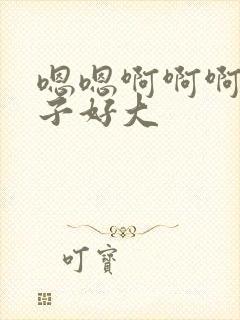 嗯嗯啊啊啊
子好大
叮寶